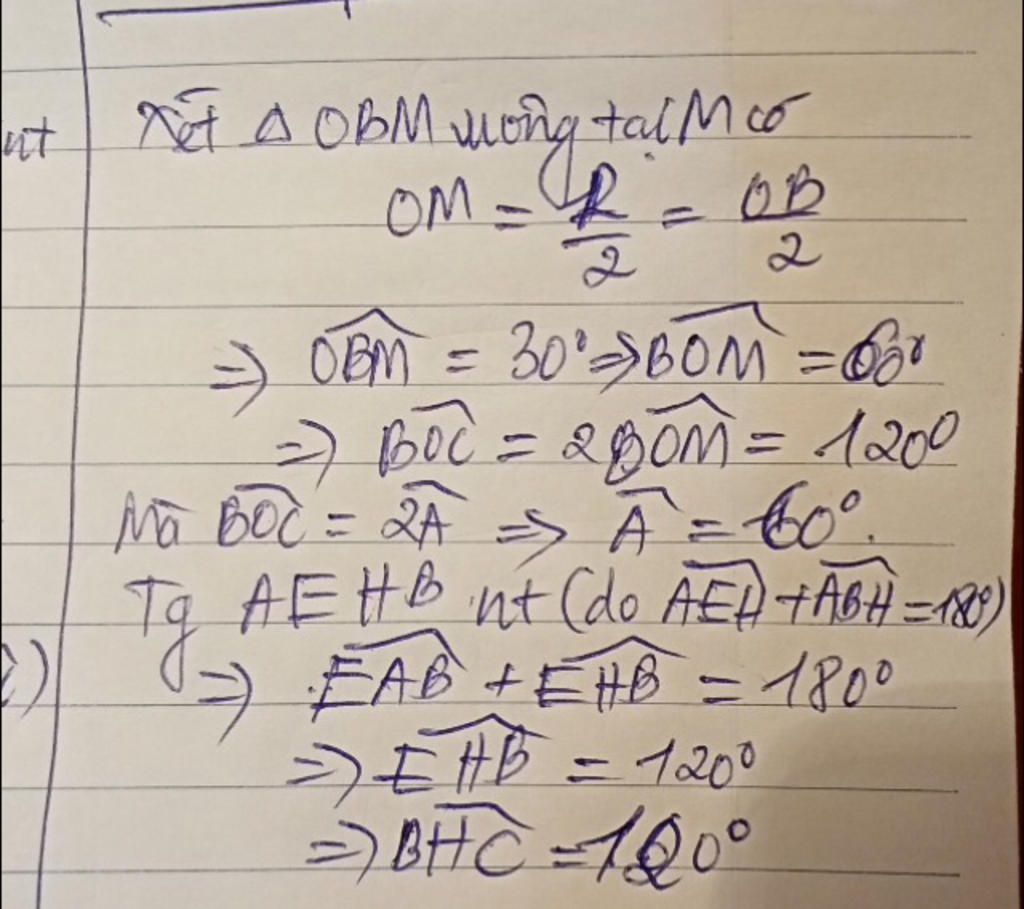 Xét Δ OBM vuông tại M có
nt
OM = R/2 = OB/2
=> \widehat{OBM} = 30° => \widehat{BOM} = 60°
=> \widehat{BOC} = 2\widehat{BOM} = 120°
Mà \widehat{BOC} = 2\widehat{A} => \widehat{A} = 60°.
Tg AEHB nt (do \widehat{AEH} + \widehat{ABH} = 180°)
=> \widehat{EAB} + \widehat{EHB} = 180°
=> \widehat{EHB} = 120°
=> \widehat{BHC} = 120°